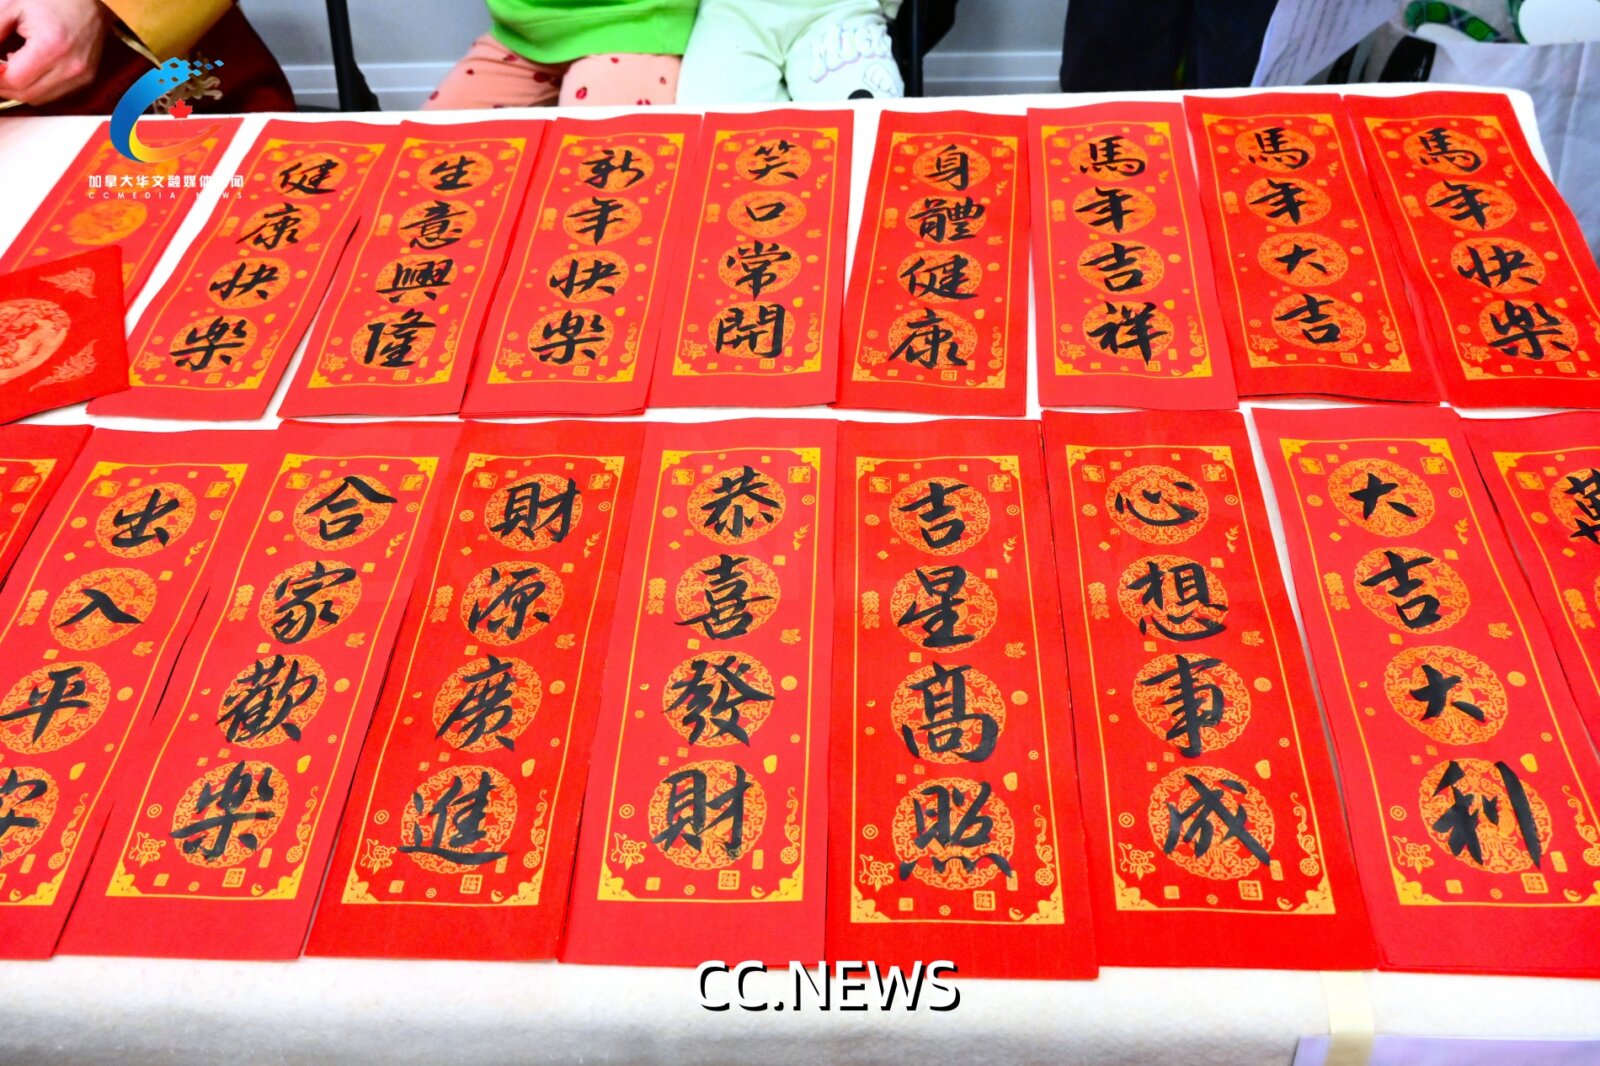 加拿大华文融媒体新闻
CCMEDIA NEWS
健康快樂
生意興隆
新年快樂
笑口常開
身體健康
馬年吉祥
馬年大吉
馬年快樂
出入平安
合家歡樂
財源廣進
恭喜發財
吉星高照
心想事成
大吉大利
CC.NEWS